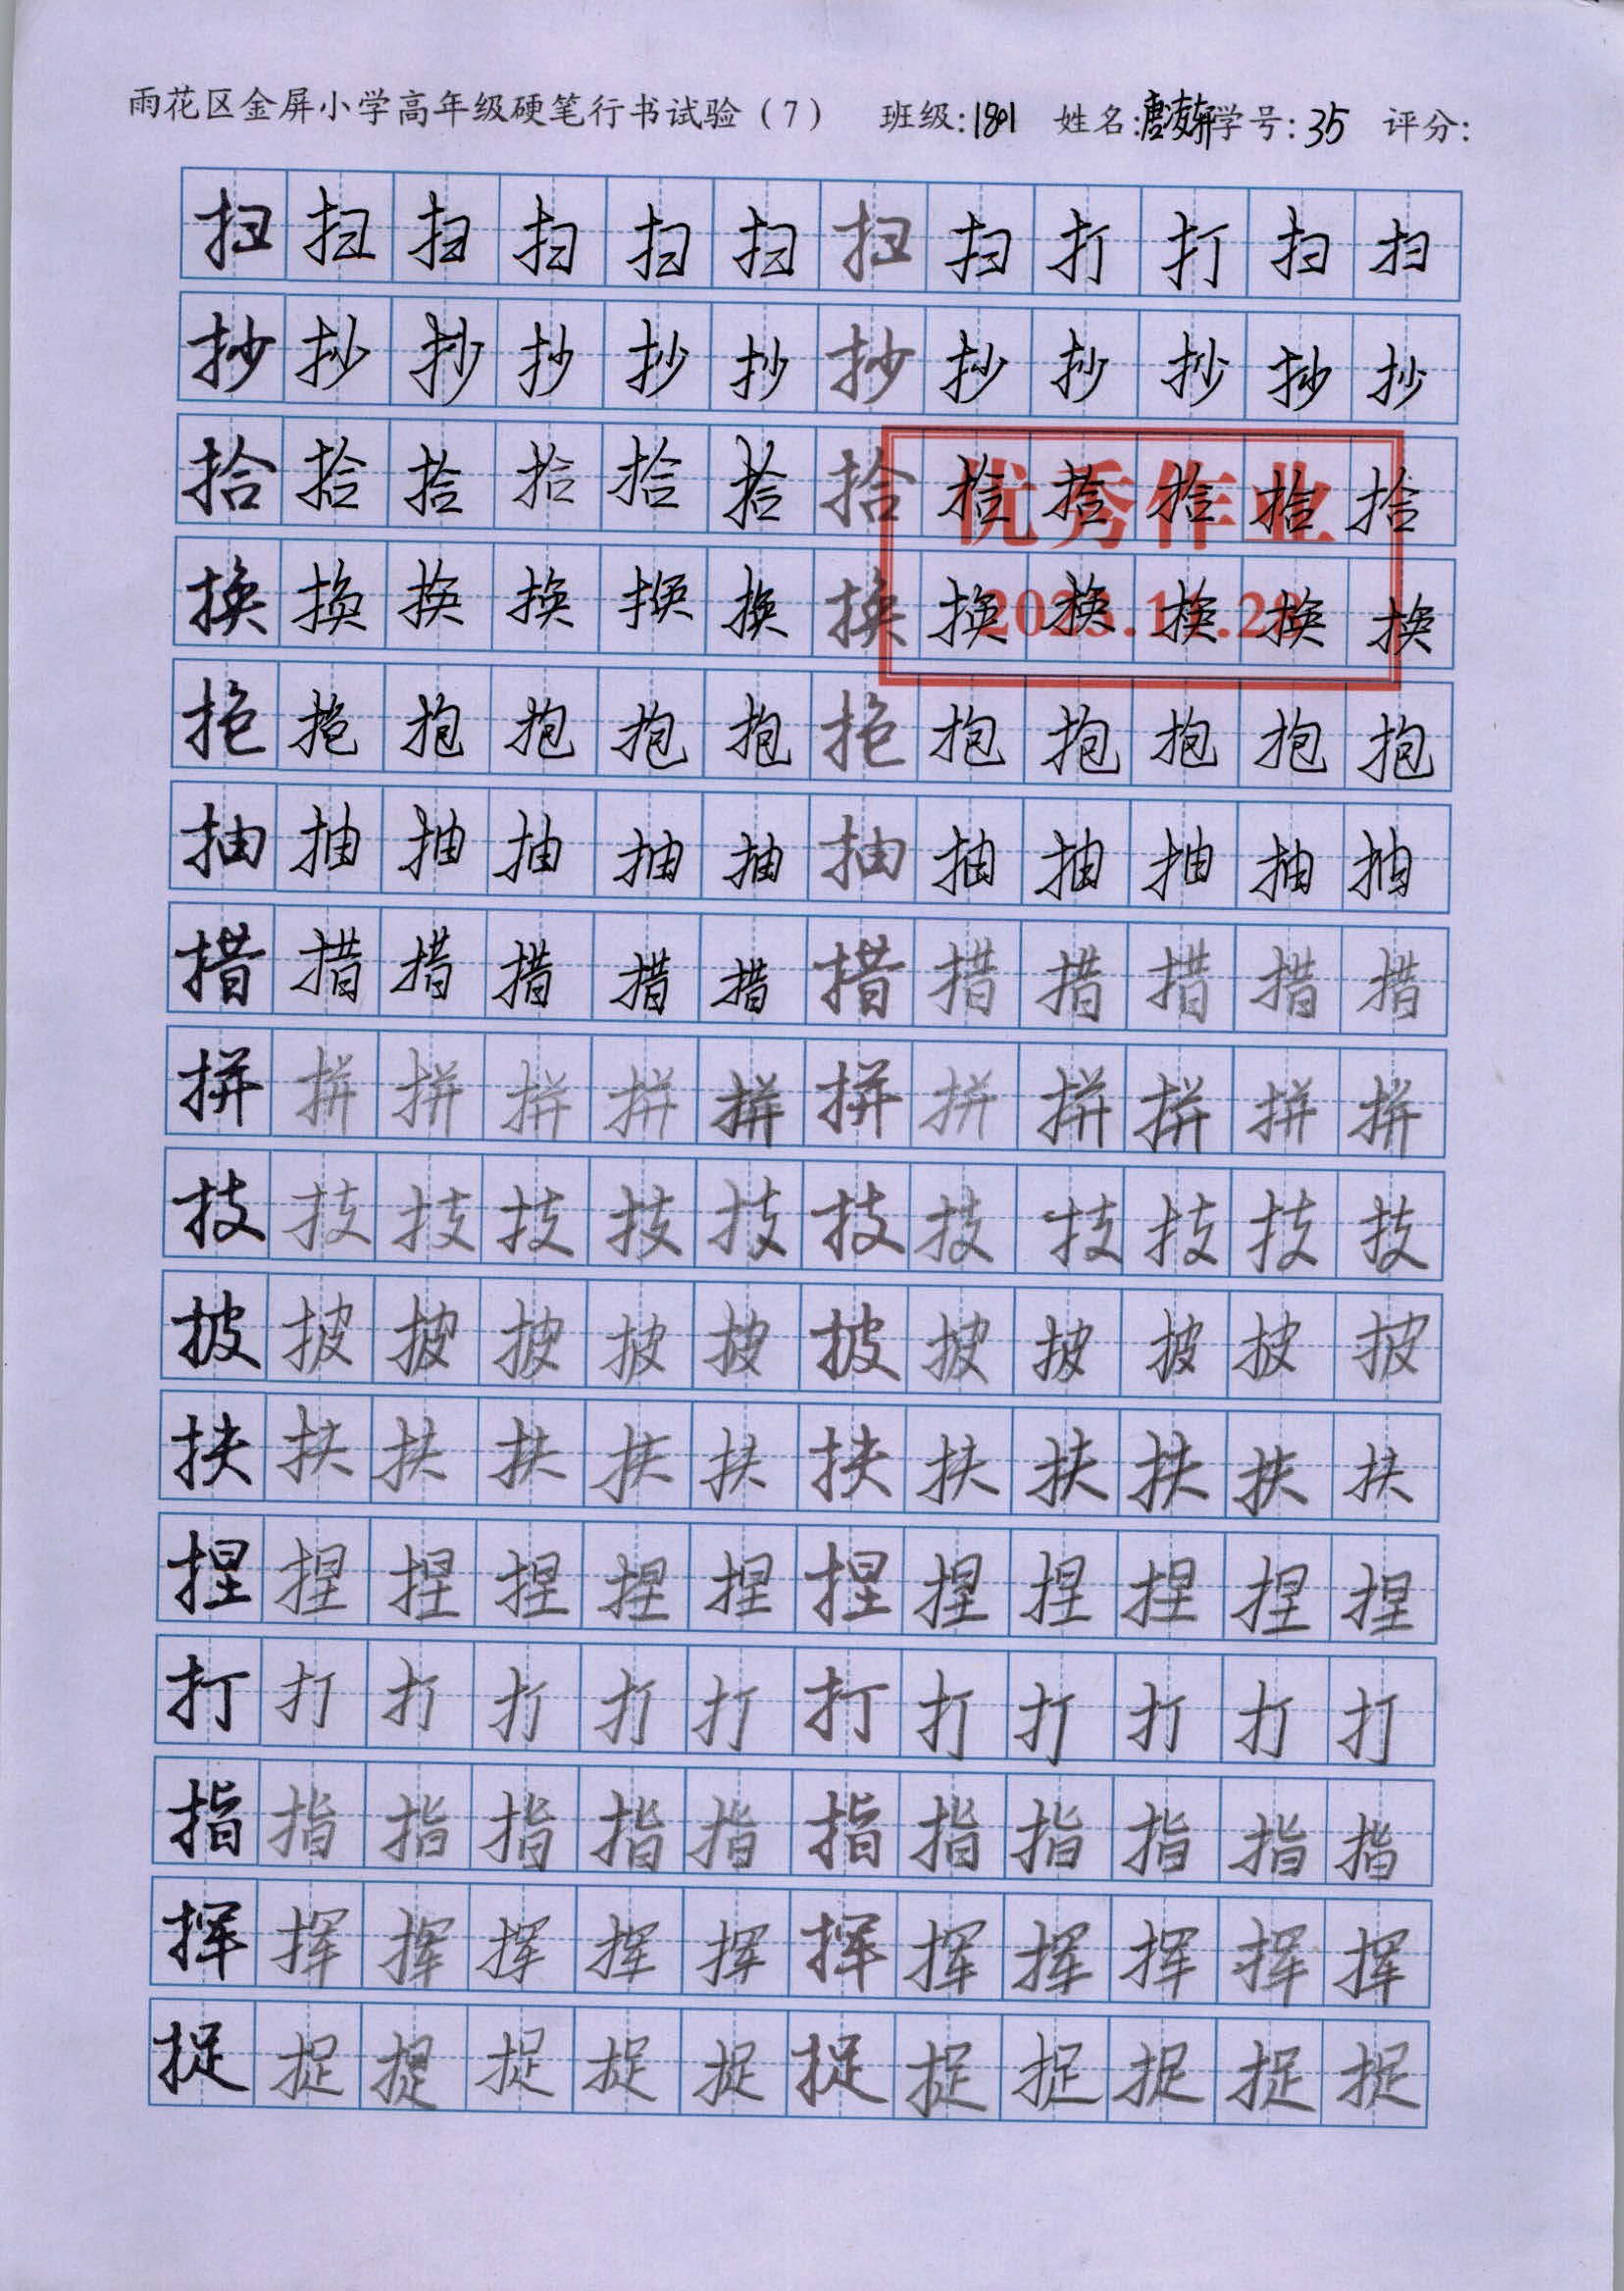 雨花区金屏小学高年级硬笔行书试验（7） 班级:1801 姓名:唐凌轩 学号:35 评分:
扫扫扫扫扫扫扫扫打打扫扫
抄抄抄抄抄抄抄抄抄抄抄抄
拾拾拾拾拾拾拾拾拾拾拾拾
优秀作业
换换换换换换换换换换换换
抱抱抱抱抱抱抱抱抱抱抱抱
抽抽抽抽抽抽抽抽抽抽抽抽
措措措措措措措措措措措措
拼拼拼拼拼拼拼拼拼拼拼拼
技技技技技技技技技技技技
披披披披披披披披披披披披
扶扶扶扶扶扶扶扶扶扶扶扶
捏捏捏捏捏捏捏捏捏捏捏捏
打打打打打打打打打打打打
指指指指指指指指指指指指
挥挥挥挥挥挥挥挥挥挥挥挥
捉捉捉捉捉捉捉捉捉捉捉捉